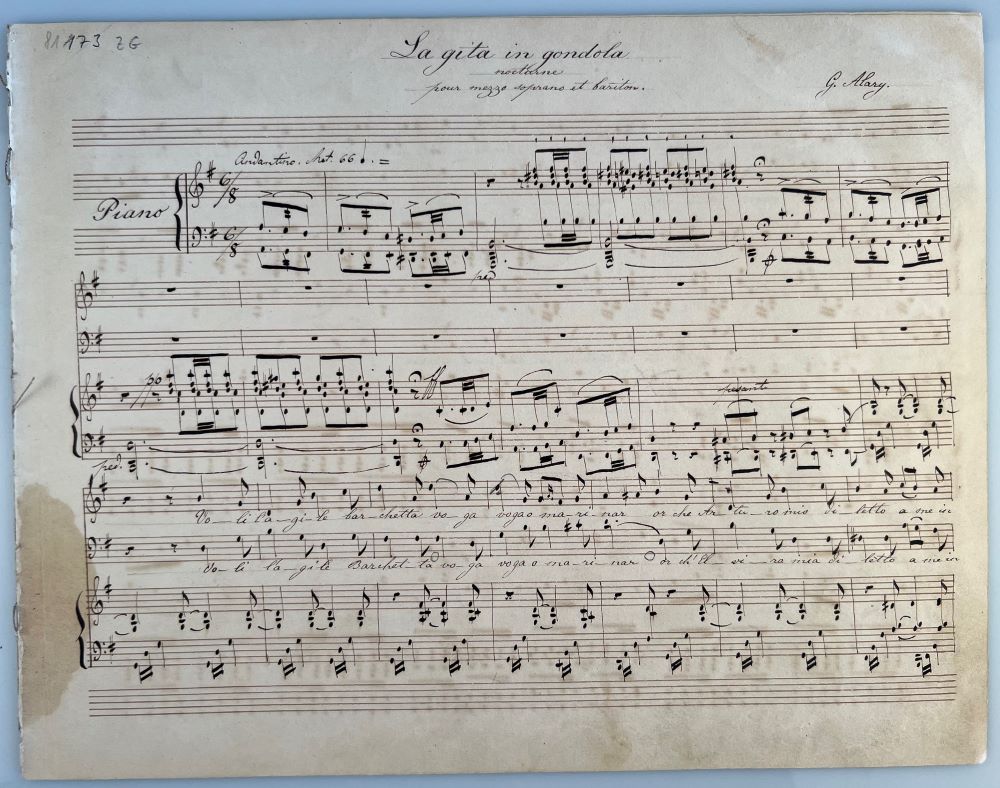 81173 ZG
La gita in gondola
nocturne
pour mezzo soprano et bariton.
G. Alary.
Andantino. Met. 66 ♩. =
Piano
6/8
6/8
ped
pp ff pesante
ped.
Vo-li l'a-gi-le bar-chetta vo-ga voga o ma-ri-nar or che di-letto a me in
Vo-li l'a-gi-le Barchet-ta vo-ga voga o ma-ri-nar or ch'El-vi-ra mia di-letto a me in